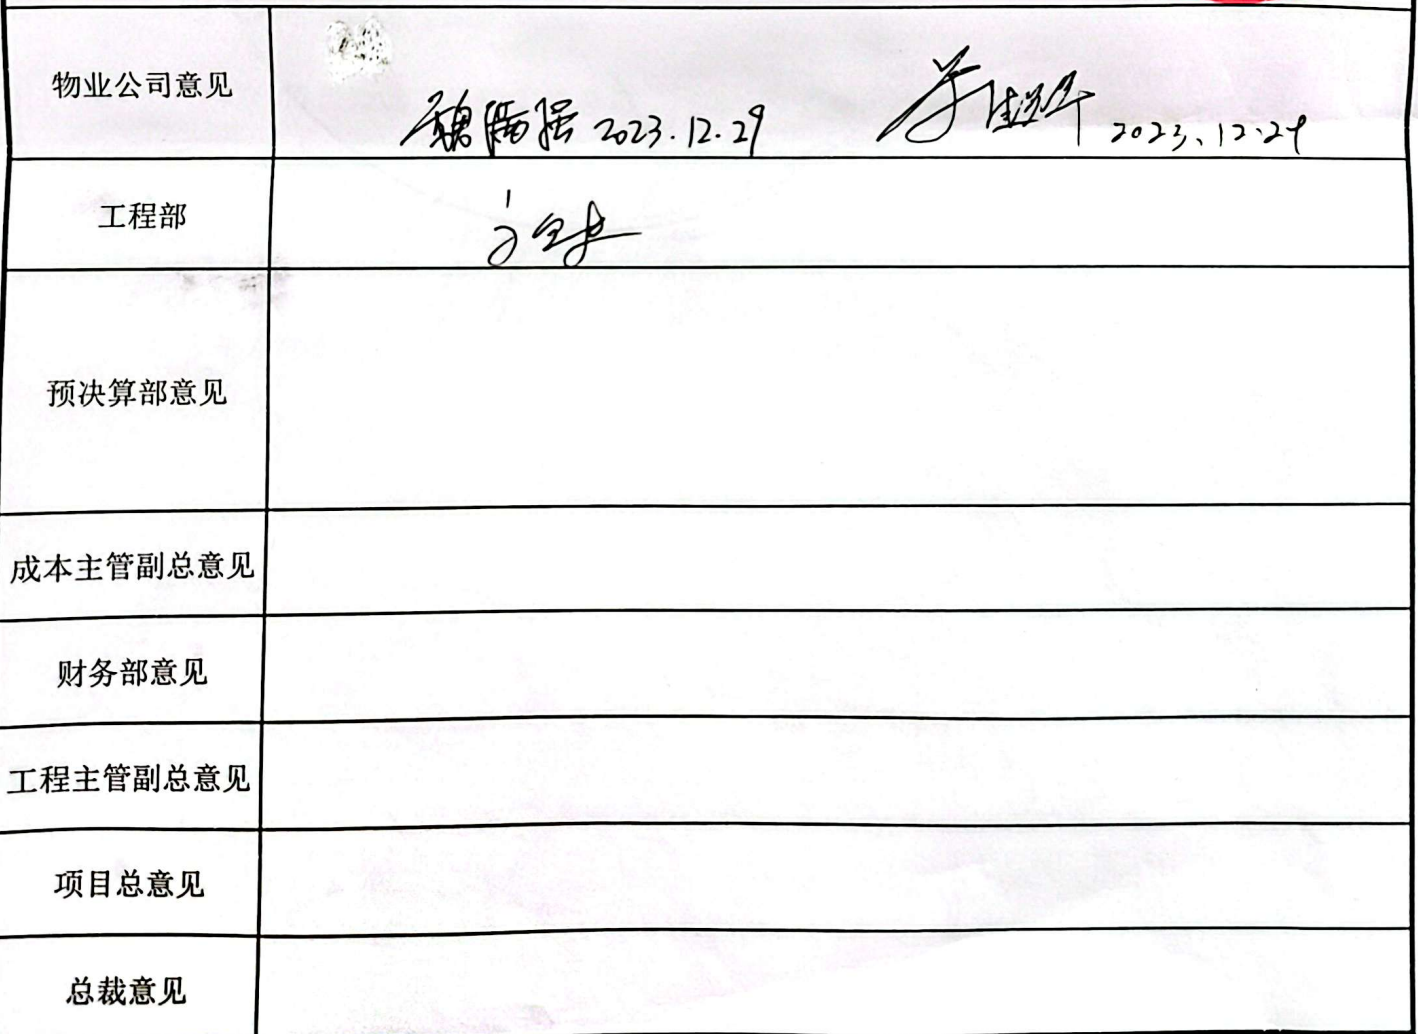 物业公司意见
2023.12.29 2023.12.29
工程部
预决算部意见
成本主管副总意见
财务部意见
工程主管副总意见
项目总意见
总裁意见